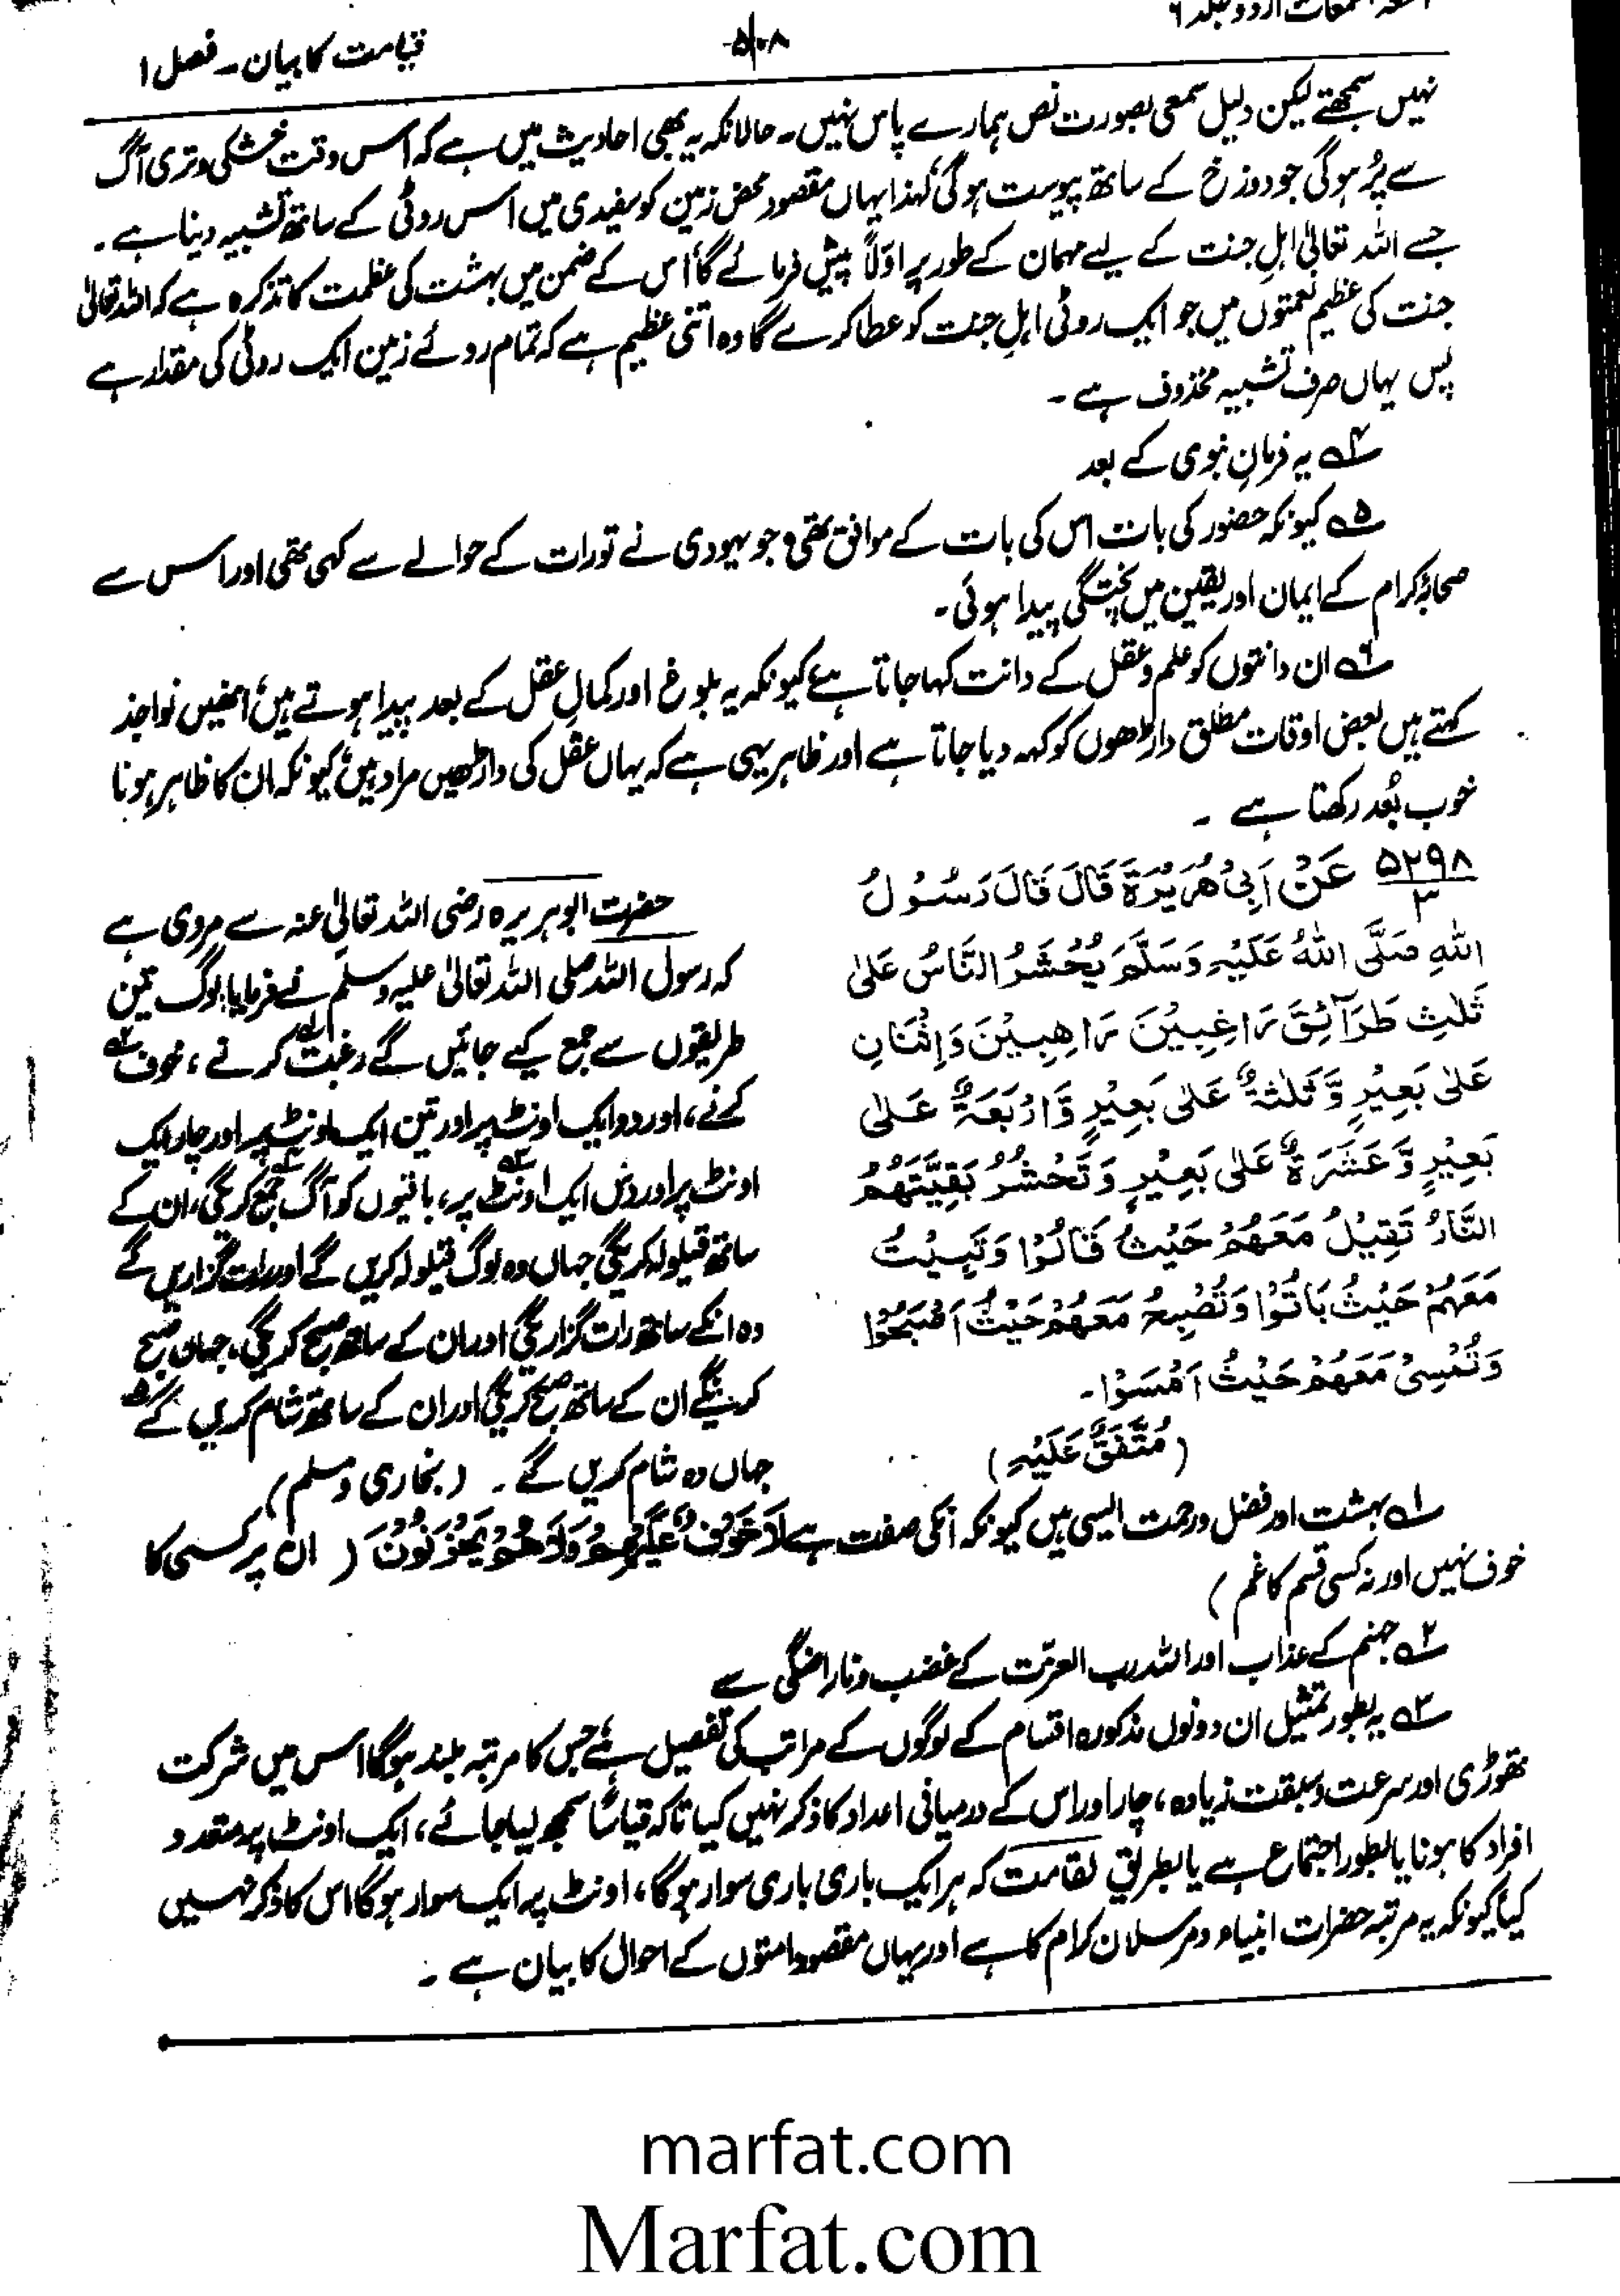 اشعۃ اللمعات اردو جلد ۶
۵۰۸
قیامت کا بیان۔ فصل ۱
نہیں سمجھتے لیکن دلیل سمعی بصورت نص ہمارے پاس نہیں۔ حالانکہ یہ بھی احادیث میں ہے کہ اس وقت خشکی و تری آگ
سے پُر ہوگی جو دوزخ کے ساتھ پیوست ہوگی، لہذا یہاں مقصود محض زمین کو سفیدی میں اس روٹی کے ساتھ تشبیہ دینا ہے۔
جسے اللہ تعالیٰ اہلِ جنت کے لیے مہمان کے طور پر اوّلاً پیش فرمائے گا، اس کے ضمن میں بہشت کی عظمت کا تذکرہ ہے کہ اللہ تعالیٰ
جنت کی عظیم نعمتوں میں جو ایک روٹی اہلِ جنت کو عطا کرے گا وہ اتنی عظیم ہے کہ تمام روئے زمین ایک روٹی کی مقدار ہے
پس یہاں حرف تشبیہ محذوف ہے۔
۴؎ یہ فرمانِ نبوی کے بعد
۵؎ کیونکہ حضور کی بات اس کی بات کے موافق تھی، جو یہودی نے تورات کے حوالے سے کہی تھی اور اس سے
صحابۂ کرام کے ایمان اور یقین میں پختگی پیدا ہوئی۔
۶؎ ان دانتوں کو علم و عقل کے دانت کہا جاتا ہے، کیونکہ یہ بلوغ اور کمالِ عقل کے بعد پیدا ہوتے ہیں، انھیں نواجذ
کہتے ہیں بعض اوقات مطلق داڑھوں کو کہہ دیا جاتا ہے اور ظاہر یہی ہے کہ یہاں عقل کی داڑھیں مراد ہیں، کیونکہ ان کا ظاہر ہونا
خوب بُعد رکھتا ہے۔
۵۲۹۸
۳
عَنْ اَبِیْ هُرَیْرَةَ قَالَ قَالَ رَسُوْلُ
اللهِ صَلَّی اللهُ عَلَیْهِ وَسَلَّمَ یُحْشَرُ النَّاسُ عَلٰی
ثَلٰثِ طَرَآئِقَ رَاغِبِیْنَ رَاهِبِیْنَ وَاثْنَانِ
عَلٰی بَعِیْرٍ وَّثَلٰثَةٌ عَلٰی بَعِیْرٍ وَّاَرْبَعَةٌ عَلٰی
بَعِیْرٍ وَّعَشَرَةٌ عَلٰی بَعِیْرٍ وَتَحْشُرُ بَقِیَّتَهُمُ
النَّارُ تَقِیْلُ مَعَهُمْ حَیْثُ قَالُوْا وَتَبِیْتُ
مَعَهُمْ حَیْثُ بَاتُوْا وَتُصْبِحُ مَعَهُمْ حَیْثُ اَصْبَحُوْا
وَتُمْسِیْ مَعَهُمْ حَیْثُ اَمْسَوْا۔
(مُتَّفَقٌ عَلَیْهِ)
حضرت ابو ہریرہ رضی اللہ تعالیٰ عنہ سے مروی ہے
کہ رسول اللہ صلی اللہ تعالیٰ علیہ وسلم نے فرمایا: لوگ تین
طریقوں سے جمع کیے جائیں گے رغبت۱؎ کرتے، خوف۲؎
کرتے، اور دو ایک اونٹ پر اور تین ایک اونٹ پر اور چار ایک
اونٹ پر اور دس ایک اونٹ۳؎ پر، باقیوں کو آگ جمع۴؎ کریگی، ان کے
ساتھ قیلولہ کریگی جہاں وہ لوگ قیلولہ کریں گے اور رات گزاریں گے
وہ انکے ساتھ رات گزاریگی اور ان کے ساتھ صبح کریگی، جہاں صبح
کرینگے ان کے ساتھ صبح کریگی اور ان کے ساتھ شام کریں گے۵؎
جہاں وہ شام کریں گے۔ (بخاری و مسلم)
۱؎ بہشت اور فضل و رحمت ایسی ہیں کیونکہ انکی صفت ہے لَا خَوْفٌ عَلَیْهِمْ وَلَا هُمْ یَحْزَنُوْنَ (ان پر کسی کا
خوف نہیں اور نہ کسی قسم کا غم)
۲؎ جہنم کے عذاب اور اللہ رب العزّت کے غضب و ناراضگی سے
۳؎ یہ بطور تمثیل ان دونوں مذکورہ اقسام کے لوگوں کے مراتب کی تفصیل ہے، جس کا مرتبہ بلند ہوگا اس میں شرکت
تھوڑی اور سرعت و سبقت زیادہ، چار اور اس کے درمیانی اعداد کا ذکر نہیں کیا تاکہ قیاساً سمجھ لیا جائے، ایک اونٹ پر متعدد
افراد کا ہونا یا بطور اجتماع ہے یا بطریق لقامت کہ ہر ایک باری باری سوار ہوگا، اونٹ پہ ایک سوار ہوگا اس کا ذکر نہیں
کیا، کیونکہ یہ مرتبہ حضرات انبیاء و مرسلان کرام کا ہے اور یہاں مقصود امتوں کے احوال کا بیان ہے۔
marfat.com
Marfat.com